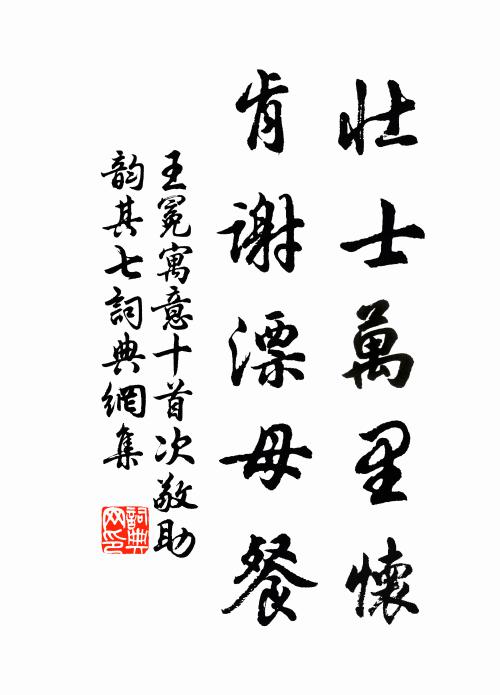 壯士萬里懷
肯謝漂母餐
王冕寓意十首次敬助
韵其七詞典網集
詞典網印